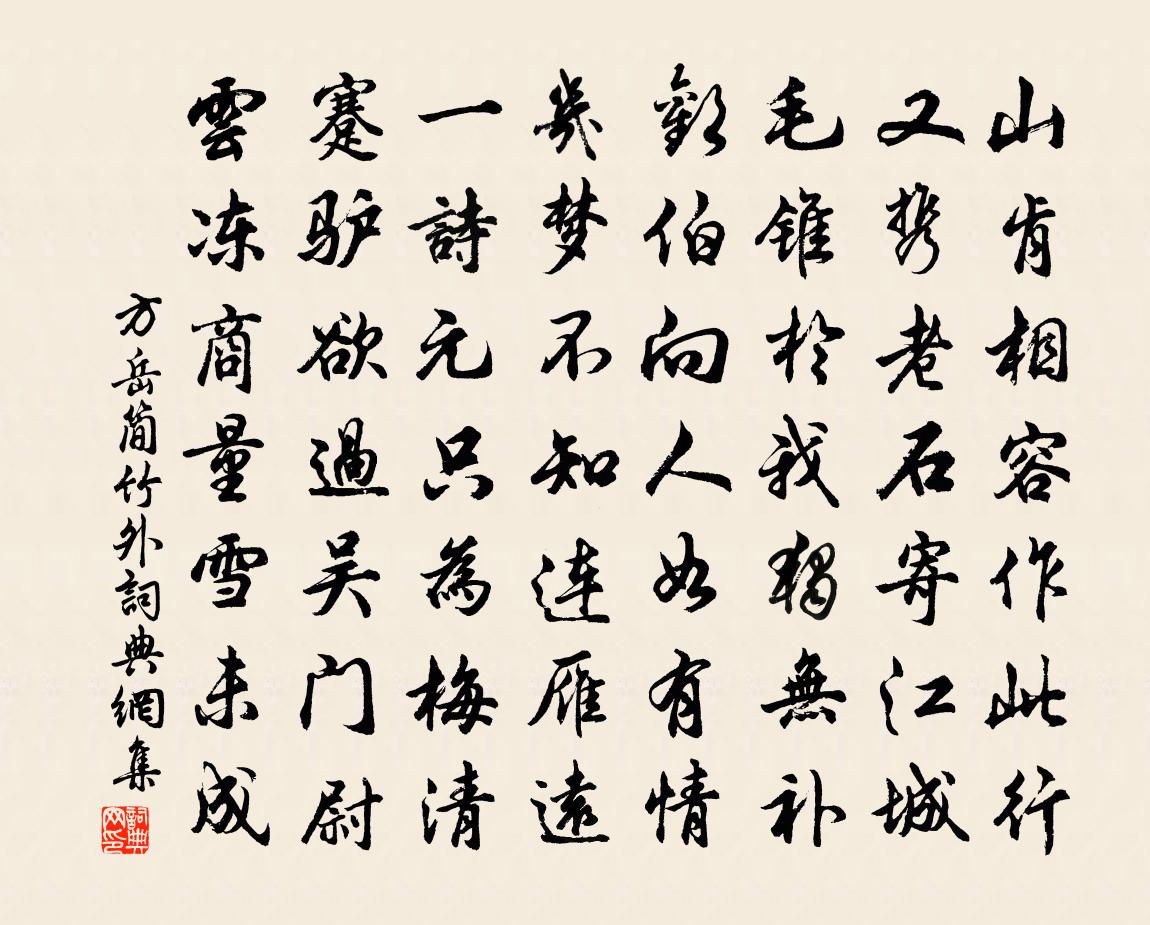 山肯相容作此行
又携老石寄江城
毛錐於我獨無补
歡伯向人如有情
幾梦不知連雁遠
一詩元只為梅清
蹇驴欲過吴门尉
雲冻商量雪未成
方岳簡竹外詞典網集
詞典网印